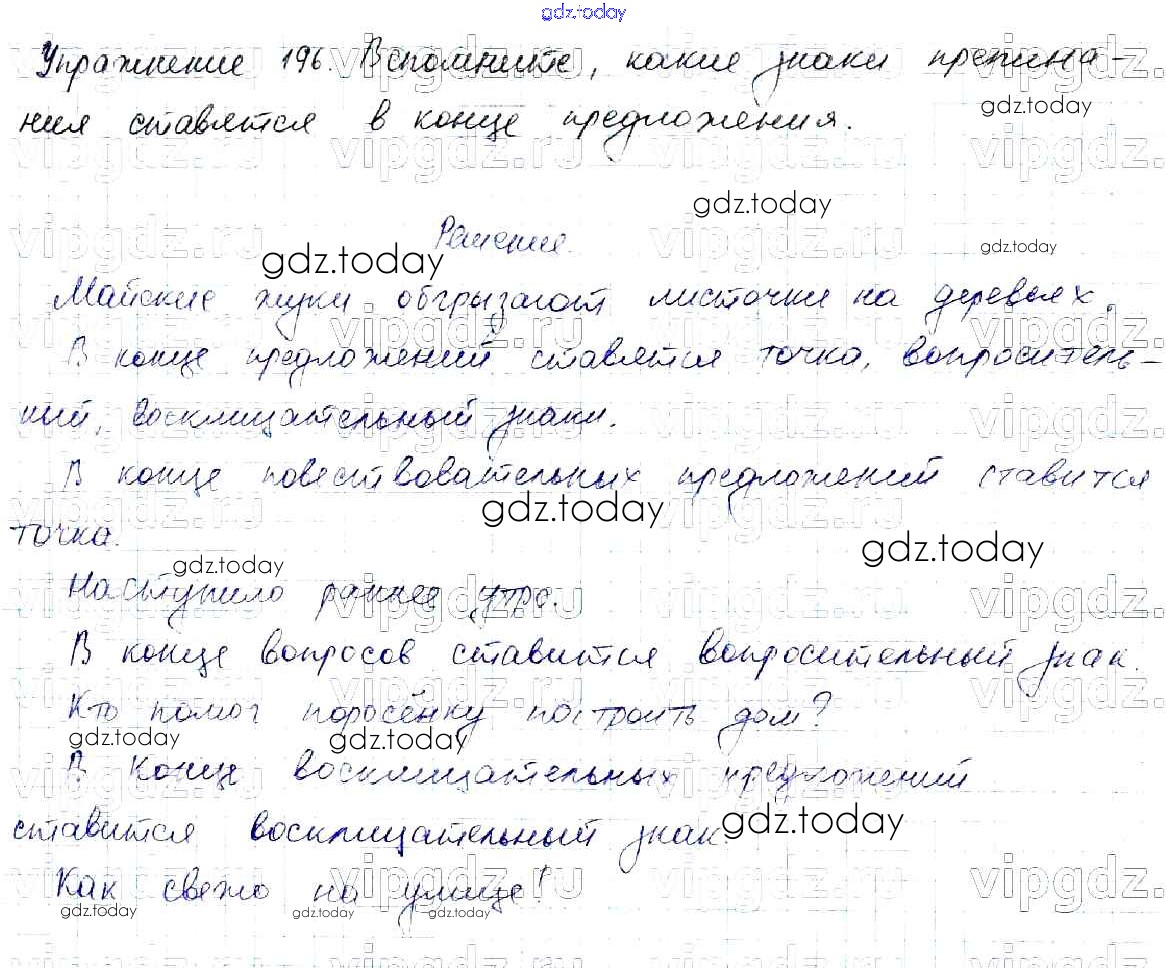 gdz.today
Упражнение 196. Вспомните, какие знаки препина-
gdz.today
ния ставятся в конце предложения.
gdz.today
Решение.
gdz.today
gdz.today
Майские жуки обгрызают листочки на деревьях.
В конце предложений ставятся точка, вопроситель-
ный, восклицательный знаки.
В конце повествовательных предложений ставится
gdz.today
точка.
gdz.today
gdz.today
Наступило раннее утро.
В конце вопросов ставится вопросительный знак.
Кто помог поросёнку построить дом?
gdz.today gdz.today
В конце восклицательных предложений
ставится восклицательный знак.
gdz.today
Как свежо на улице!
gdz.today gdz.today gdz.today
vipgdz.ru